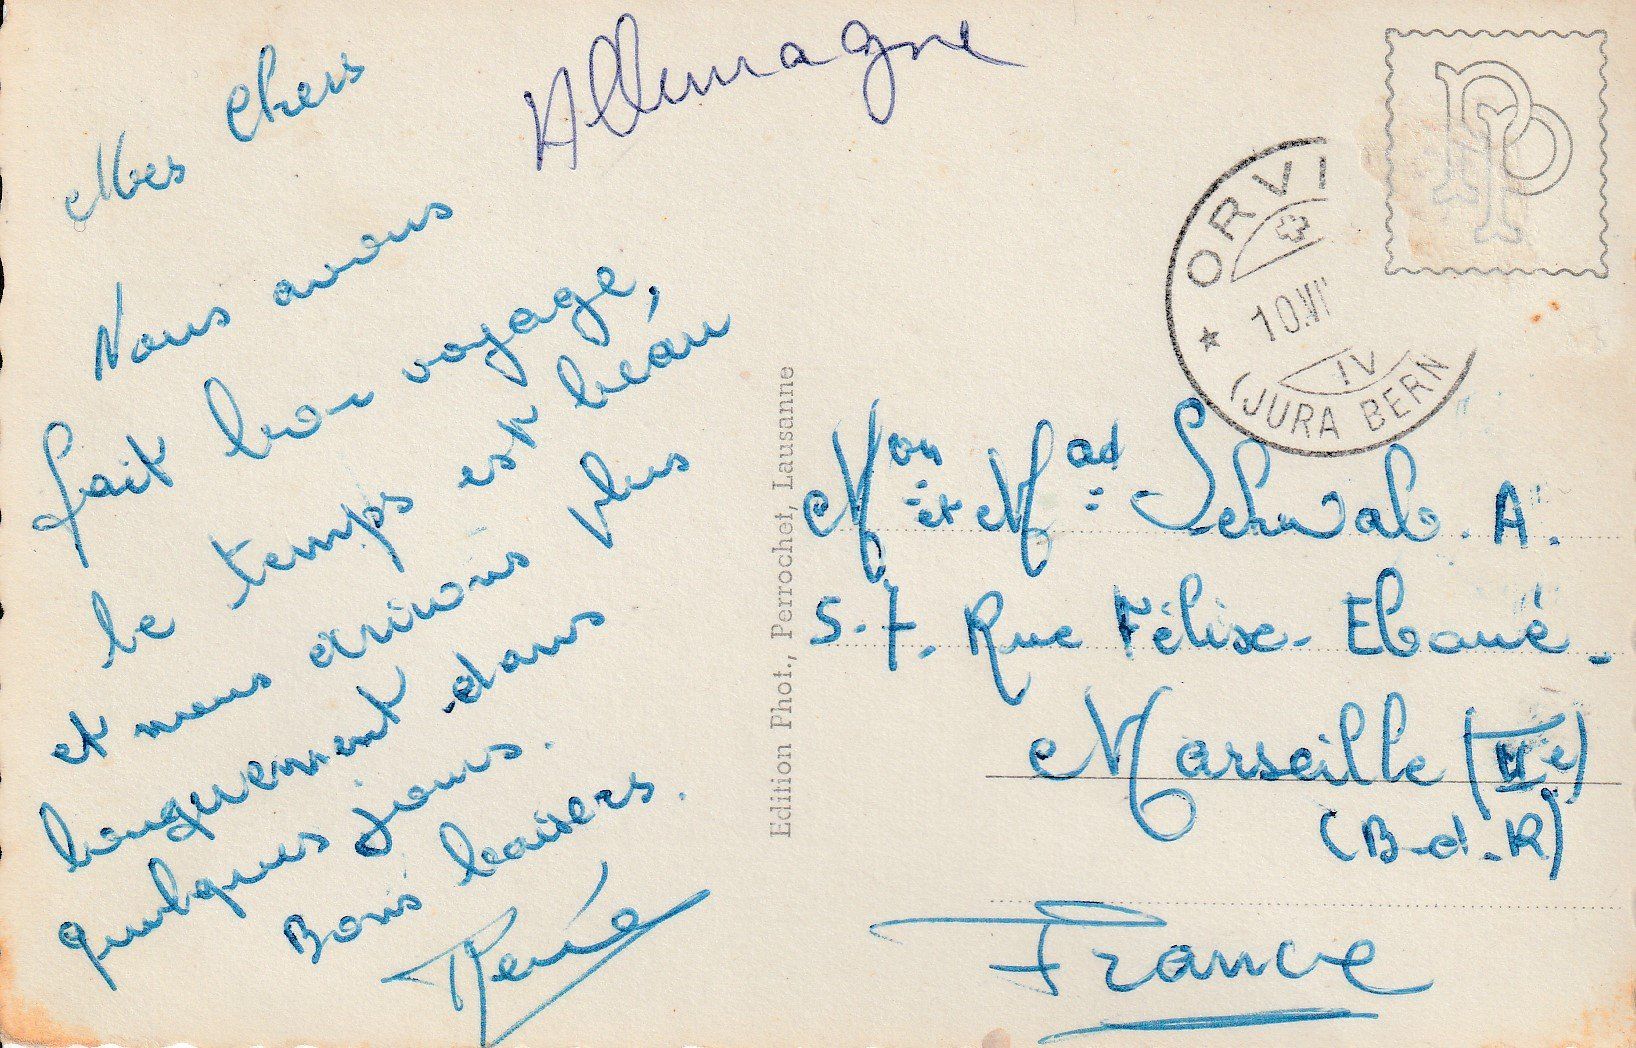 Allemagne
Mes Chers
Nous avons
fait bon voyage,
le temps est beau
et nous écrivons plus
longuement dans
quelques jours.
Bons baisers.
René
Edition Phot., Perrochet, Lausanne
PP
ORVI
10.VI
IV
(JURA BERN
Mon et Mad Schwab. A.
57. Rue Félix-Eboué.
Marseille (IIe)
(B-d-R)
France